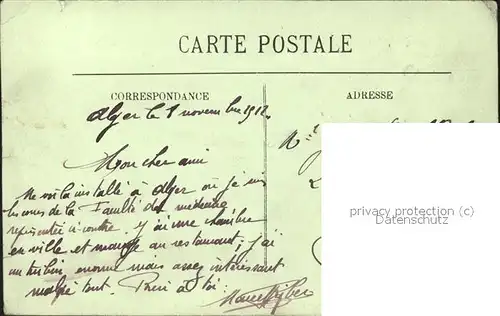 CARTE POSTALE
CORRESPONDANCE
ADRESSE
Alger le 1 novembre 1912
Mon cher ami
Me voilà installé à Alger où je suis
les cours de la Faculté de médecine
représentée ci contre. J'ai une chambre
en ville et mange au restaurant; j'ai
un turbin énorme mais assez intéressant
malgré tout. Bien à toi
Marcel
privacy protection (c)
Datenschutz